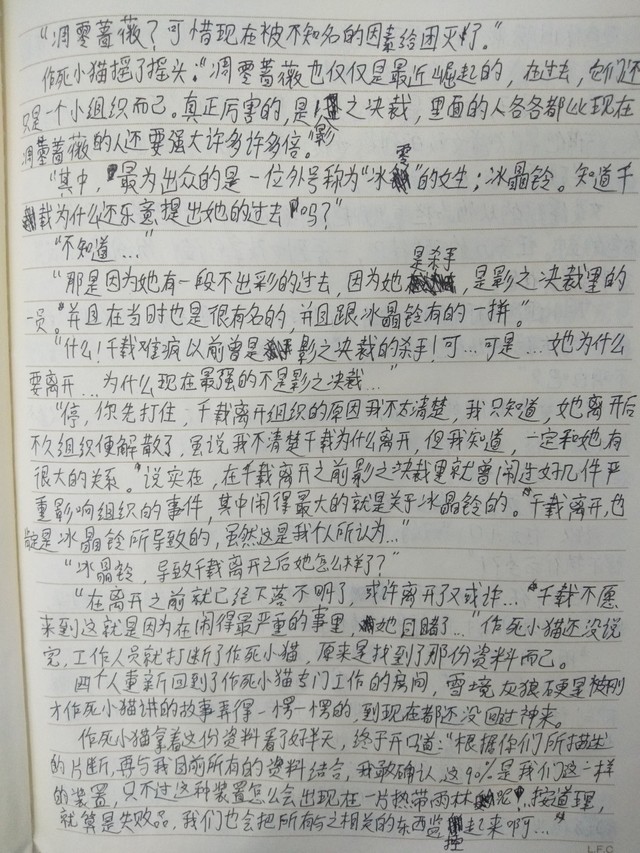 “凋零蔷薇？可惜现在被不知名的因素给团灭了。”
作死小猫摇了摇头：“凋零蔷薇也仅仅是最近崛起的，在过去，它们还
只是一个小组织而已。真正厉害的，是影之决裁，里面的人各各都比现在
凋零蔷薇的人还要强大许多许多倍。”
“其中，最为出众的是一位外号称为“冰零”的女生；冰晶铃。知道千
载为什么还乐意提出她的过去吗？”
“不知道…”
“那是因为她有一段不出彩的过去，因为她是杀手，是影之决裁里的
一员。”并且在当时也是很有名的，并且跟冰晶铃有的一拼。”
“什么！千载难疯以前曾是影之决裁的杀手！可…可是…她为什么
要离开…为什么现在最强的不是影之决裁…”
“停，你先打住，千载离开组织的原因我不太清楚，我只知道，她离开后
不久组织便解散了，虽说我不清楚千载为什么离开，但我知道，一定和她有
很大的关系。”说实在，在千载离开之前影之决裁里就曾闹过好几件严
重影响组织的事件，其中闹得最大的就是关于冰晶铃的。“千载离开，也
是冰晶铃所导致的，虽然这是我个人所认为…”
“冰晶铃，导致千载离开之后她怎么样了？”
“在离开之前就已经下落不明了，或许离开了又或许…“千载不愿
来到这就是因为在闹得最严重的事里，她目睹了…”作死小猫还没说
完，工作人员就打断了作死小猫，原来是找到了那份资料而已。
四个人重新回到了作死小猫专门工作的房间，雪境灰狼硬是被刚
才作死小猫讲的故事弄得一愣一愣的，到现在都还没回过神来。
作死小猫拿着这份资料看了好半天，终于开口道：“根据你们所描述
的片断，再与我目前所有的资料结合，我敢确认，这90%是我们这一样
的装置，只不过这种装置怎么会出现在一片热带雨林呢，按道理，
就算是失败品，我们也会把所有与之相关的东西监控起来啊…”
L.F.C